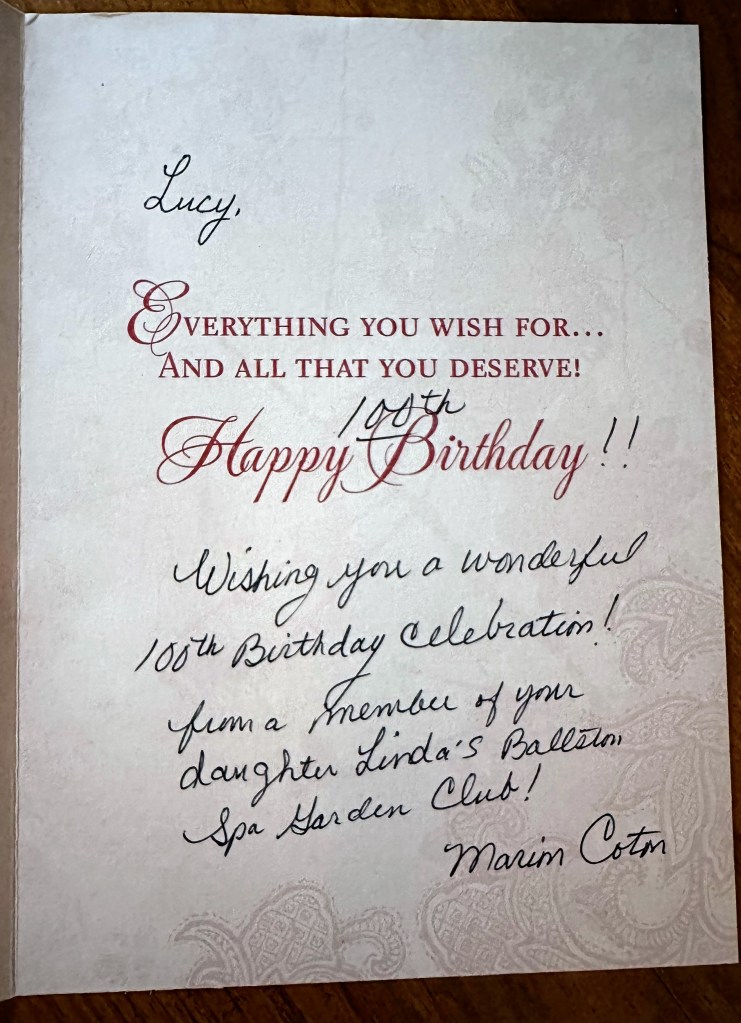 Lucy,
EVERYTHING YOU WISH FOR...
AND ALL THAT YOU DESERVE!
100th
Happy Birthday!!
Wishing you a wonderful
100th Birthday Celebration!
from a member of your
daughter Linda's Ballston
Spa Garden Club!
Marion Coton